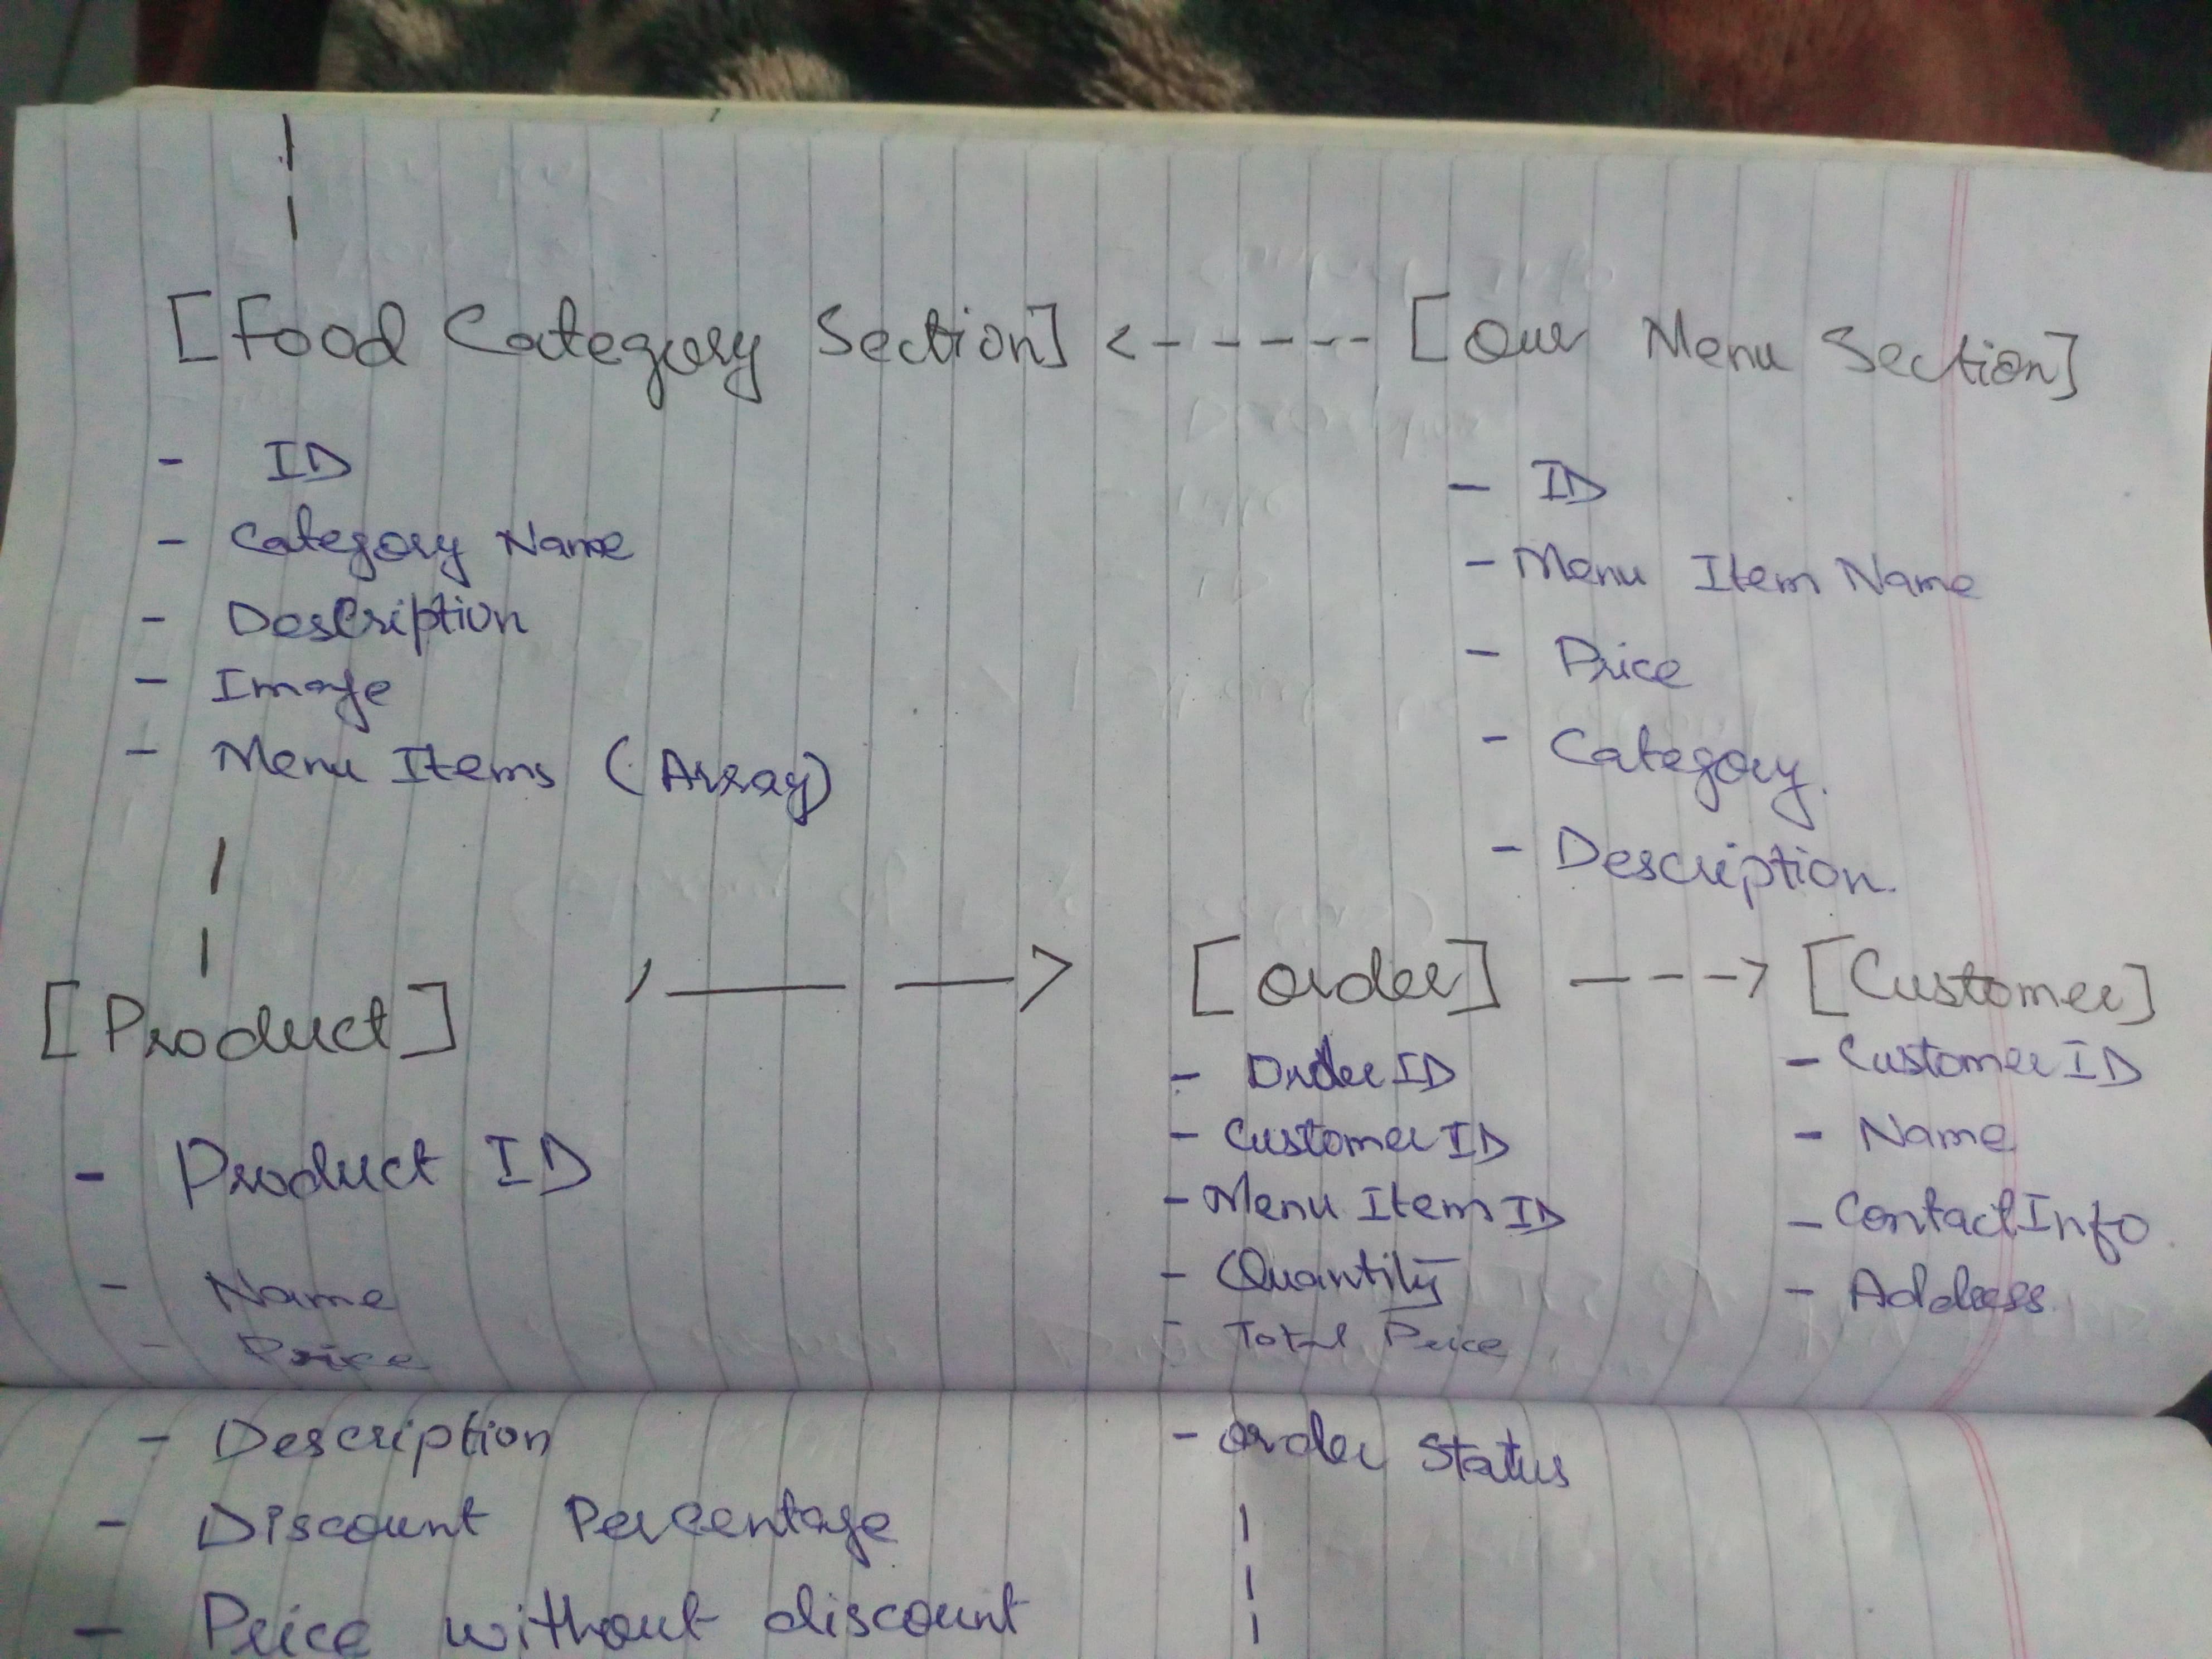 [Food Category Section] <----- [Our Menu Section]
- ID
- Category Name
- Description
- Image
- Menu Items (Array)
- ID
- Menu Item Name
- Price
- Category.
- Description.
[Product] ——> [Order] ---> [Customer]
- Product ID
- Name
- Price
- Description
- Discount Percentage
- Price without discount
- Order ID
- Customer ID
- Menu Item ID
- Quantity
- Total Price
- Order Status
- Customer ID
- Name
- Contact Info
- Address